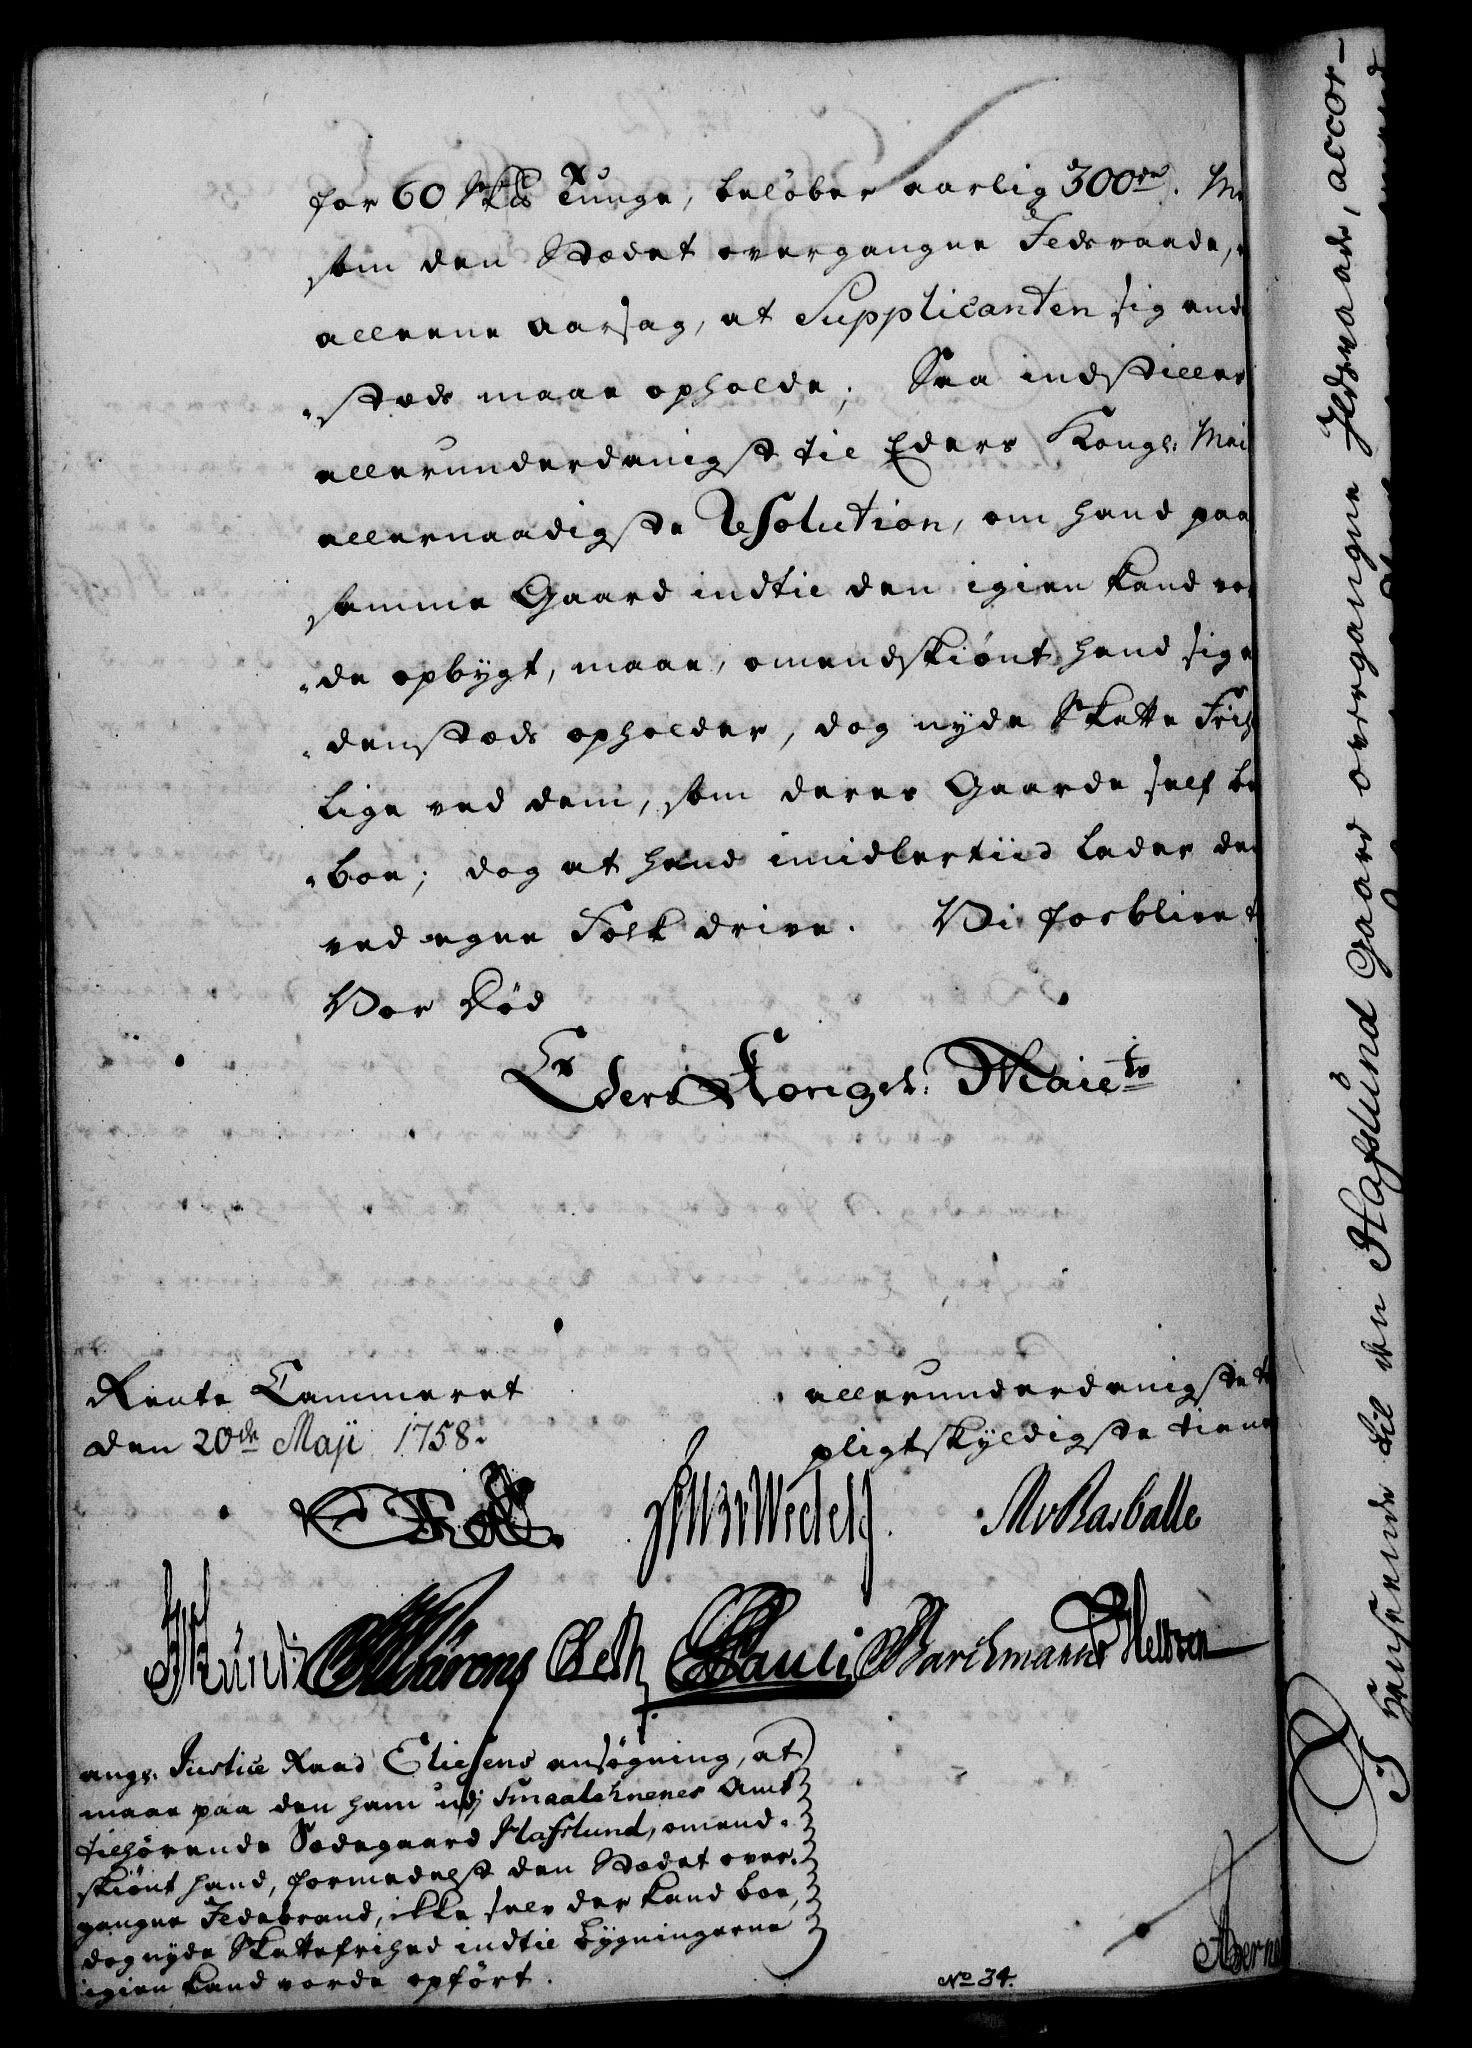 for 60 Skp Tunge, beløber aarlig 300rd. Me
som den Stædet overgangne Ildsvaade, e
alleene aarsag, at Supplicanten sig andr
"stæds maae opholde; Saa indstilles
allerunderdanigst til Eders Kongl: Mai
allernaadigste Resolution, om hand paa
samme Gaard indtil den igien kand vor
"de opbygt, maae, omendskiønt hand sig a
"denstæds opholder, dog nyde Skatte Frih
lige ved dem, som deres Gaarde self be
"boe; dog at hand imidlertiid lader den
ved egne Folk drive. Vi forblive t
Vor Død
Eders Kongel: Maiets
Rente Cammeret
den 20de Maji 1758.
allerunderdanigste t
pligtskyldigste tiene
Wedel
MvRasballe
Pauli Barchmann
angl: Justice Raad Eliesens ansøgning, at
maae paa den ham udj Smaalehnenes Amt
tilhørende Sædegaard Hafslund, omend-
skiønt hand, formedelst den Stædet over-
gangne Ildebrand, ikke selv der kand boe,
dog nyde Skattefrihed indtil bygningerne
igien kand vorde opført.
No 34.
til den Hafslund Gaard overgangne Ildsvaade, accor-